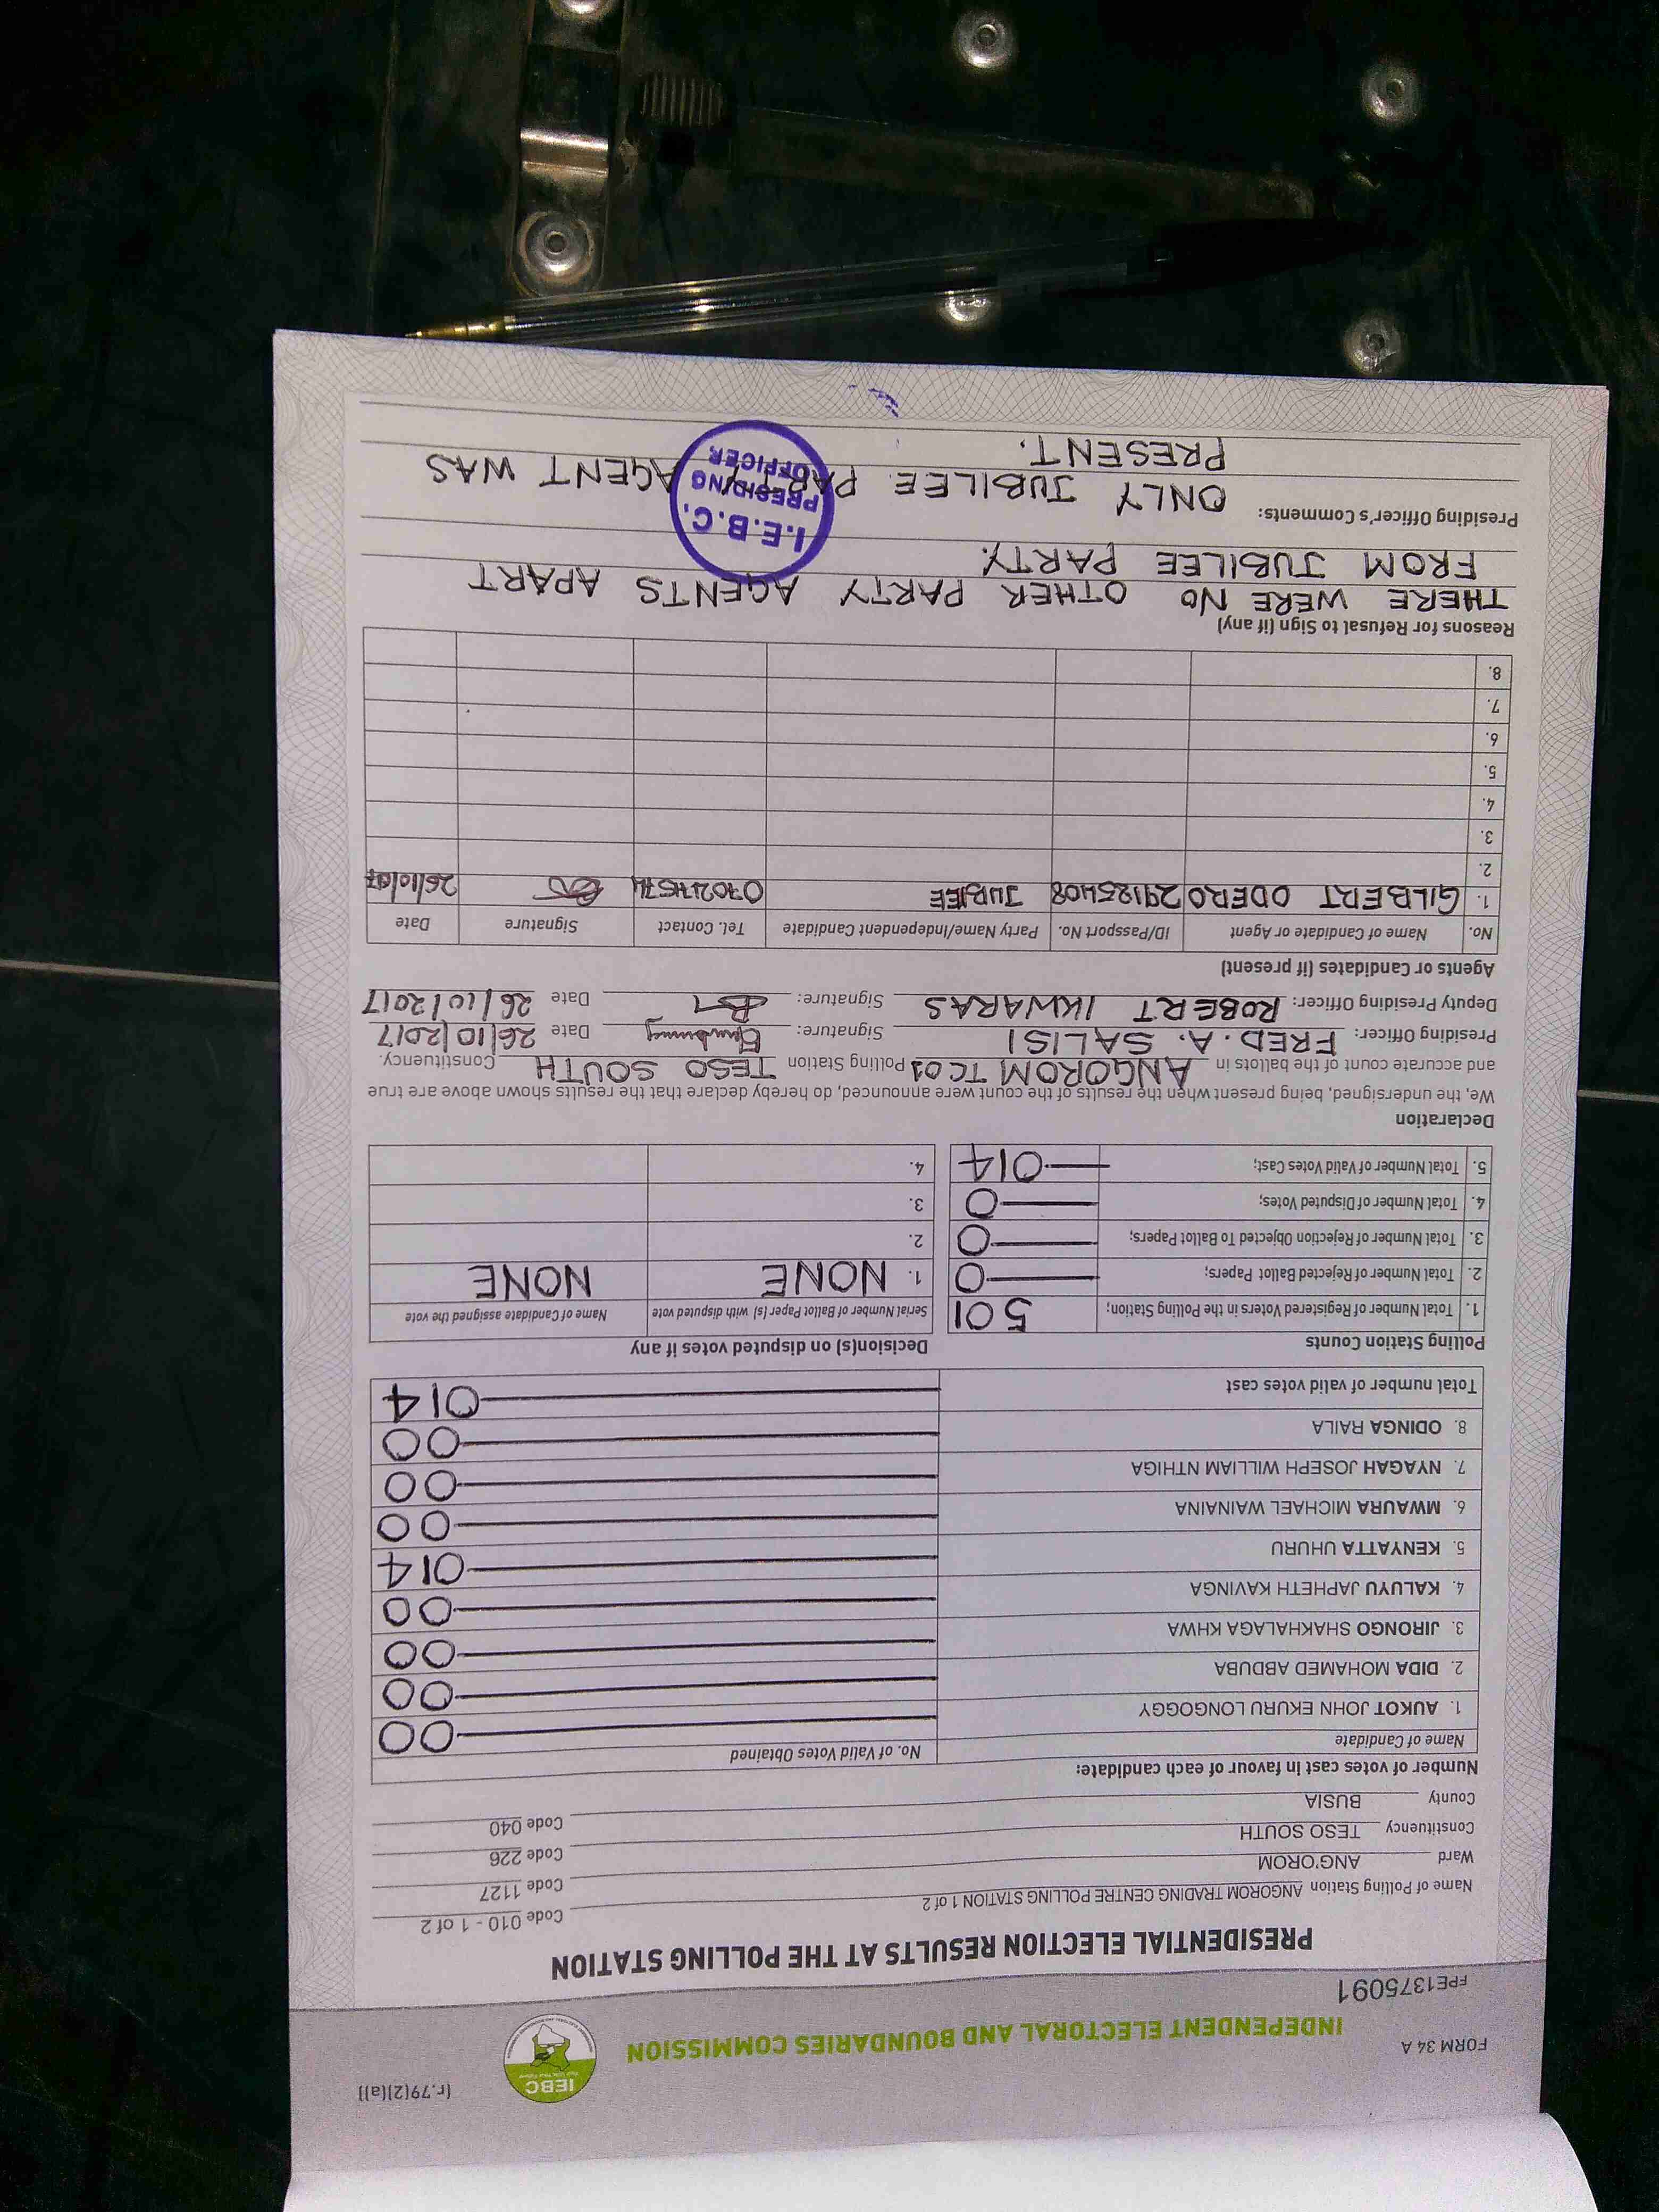 (r.79(2)(a))
FORM 34 A
IEBC
INDEPENDENT ELECTORAL AND BOUNDARIES COMMISSION
FPE1375091
PRESIDENTIAL ELECTION RESULTS AT THE POLLING STATION
Name of Polling Station ANGOROM TRADING CENTRE POLLING STATION 1 of 2 Code 010 - 1 of 2
Ward ANG'OROM Code 1127
Constituency TESO SOUTH Code 226
County BUSIA Code 040
Number of votes cast in favour of each candidate:
Name of Candidate No. of Valid Votes Obtained
1. AUKOT JOHN EKURU LONGOGGY 00
2. DIDA MOHAMED ABDUBA 00
3. JIRONGO SHAKHALAGA KHWA 00
4. KALUYU JAPHETH KAVINGA 00
5. KENYATTA UHURU 014
6. MWAURA MICHAEL WAINAINA 00
7. NYAGAH JOSEPH WILLIAM NTHIGA 00
8. ODINGA RAILA 00
Total number of valid votes cast 014
Polling Station Counts Decision(s) on disputed votes if any
1. Total Number of Registered Voters in the Polling Station; 501 Serial Number of Ballot Paper (s) with disputed vote Name of Candidate assigned the vote
2. Total Number of Rejected Ballot Papers; 0 1. NONE NONE
3. Total Number of Rejection Objected To Ballot Papers; 0 2.
4. Total Number of Disputed Votes; 0 3.
5. Total Number of Valid Votes Cast; 014 4.
Declaration
We, the undersigned, being present when the results of the count were announced, do hereby declare that the results shown above are true
and accurate count of the ballots in ANGOROM TC 01 Polling Station TESO SOUTH Constituency.
Presiding Officer: FRED. A. SALISI Signature: Date 26/10/2017
Deputy Presiding Officer: ROBERT IKWARAS Signature: Date 26/10/2017
Agents or Candidates (if present)
No. Name of Candidate or Agent ID/Passport No. Party Name/Independent Candidate Tel. Contact Signature Date
1. GILBERT ODERO 29125408 JUBILEE
2.
3.
4.
5.
6.
7.
8.
Reasons for Refusal to Sign (if any)
THERE WERE NO OTHER PARTY AGENTS APART
FROM JUBILEE PARTY.
Presiding Officer's Comments: ONLY JUBILEE PARTY AGENT WAS
PRESENT.
I.E.B.C.
PRESIDING
OFFICER